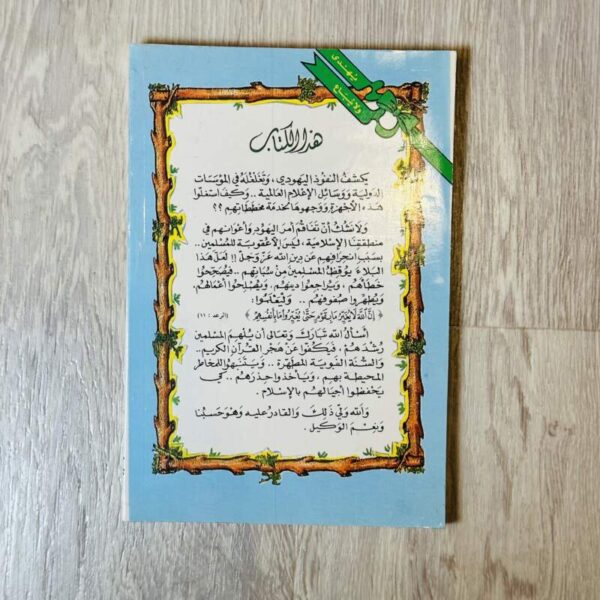 يهدى
ولا يباع
هذا الكتاب
يكشف النفوذ اليهودي، وتغلغله في المؤسسات
الدولية ووسائل الإعلام العالمية .. وكيف استغلوا
هذه الأجهزة ووجهوها لخدمة مخططاتهم ؟؟
ولا شك أن تفاقم أمر اليهود وأعوانهم في
منطقتنا الإسلامية، ليس إلا عقوبة للمسلمين ..
بسبب انحرافهم عن دين الله عز وجل !! لعل هذا
البلاء يوقظ المسلمين من سباتهم .. فيصححوا
خطأهم، ويراجعوا دينهم. ويصلحوا أعمالهم،
ويطهروا صفوفهم .. وليعلموا:
﴿إن الله لا يغير ما بقوم حتى يغيروا ما بأنفسهم﴾ (الرعد : ١١)
أسأل الله تبارك وتعالى أن يلهم المسلمين
رشدهم، فيكفوا عن هجر القرآن الكريم ..
والسنة النبوية المطهرة .. وينتبهوا للمخاطر
المحيطة بهم، ويأخذوا حذرهم .. كي
يحفظوا أجيالهم بالإسلام.
والله ولي ذلك والقادر عليه وهو حسبنا
ونعم الوكيل.